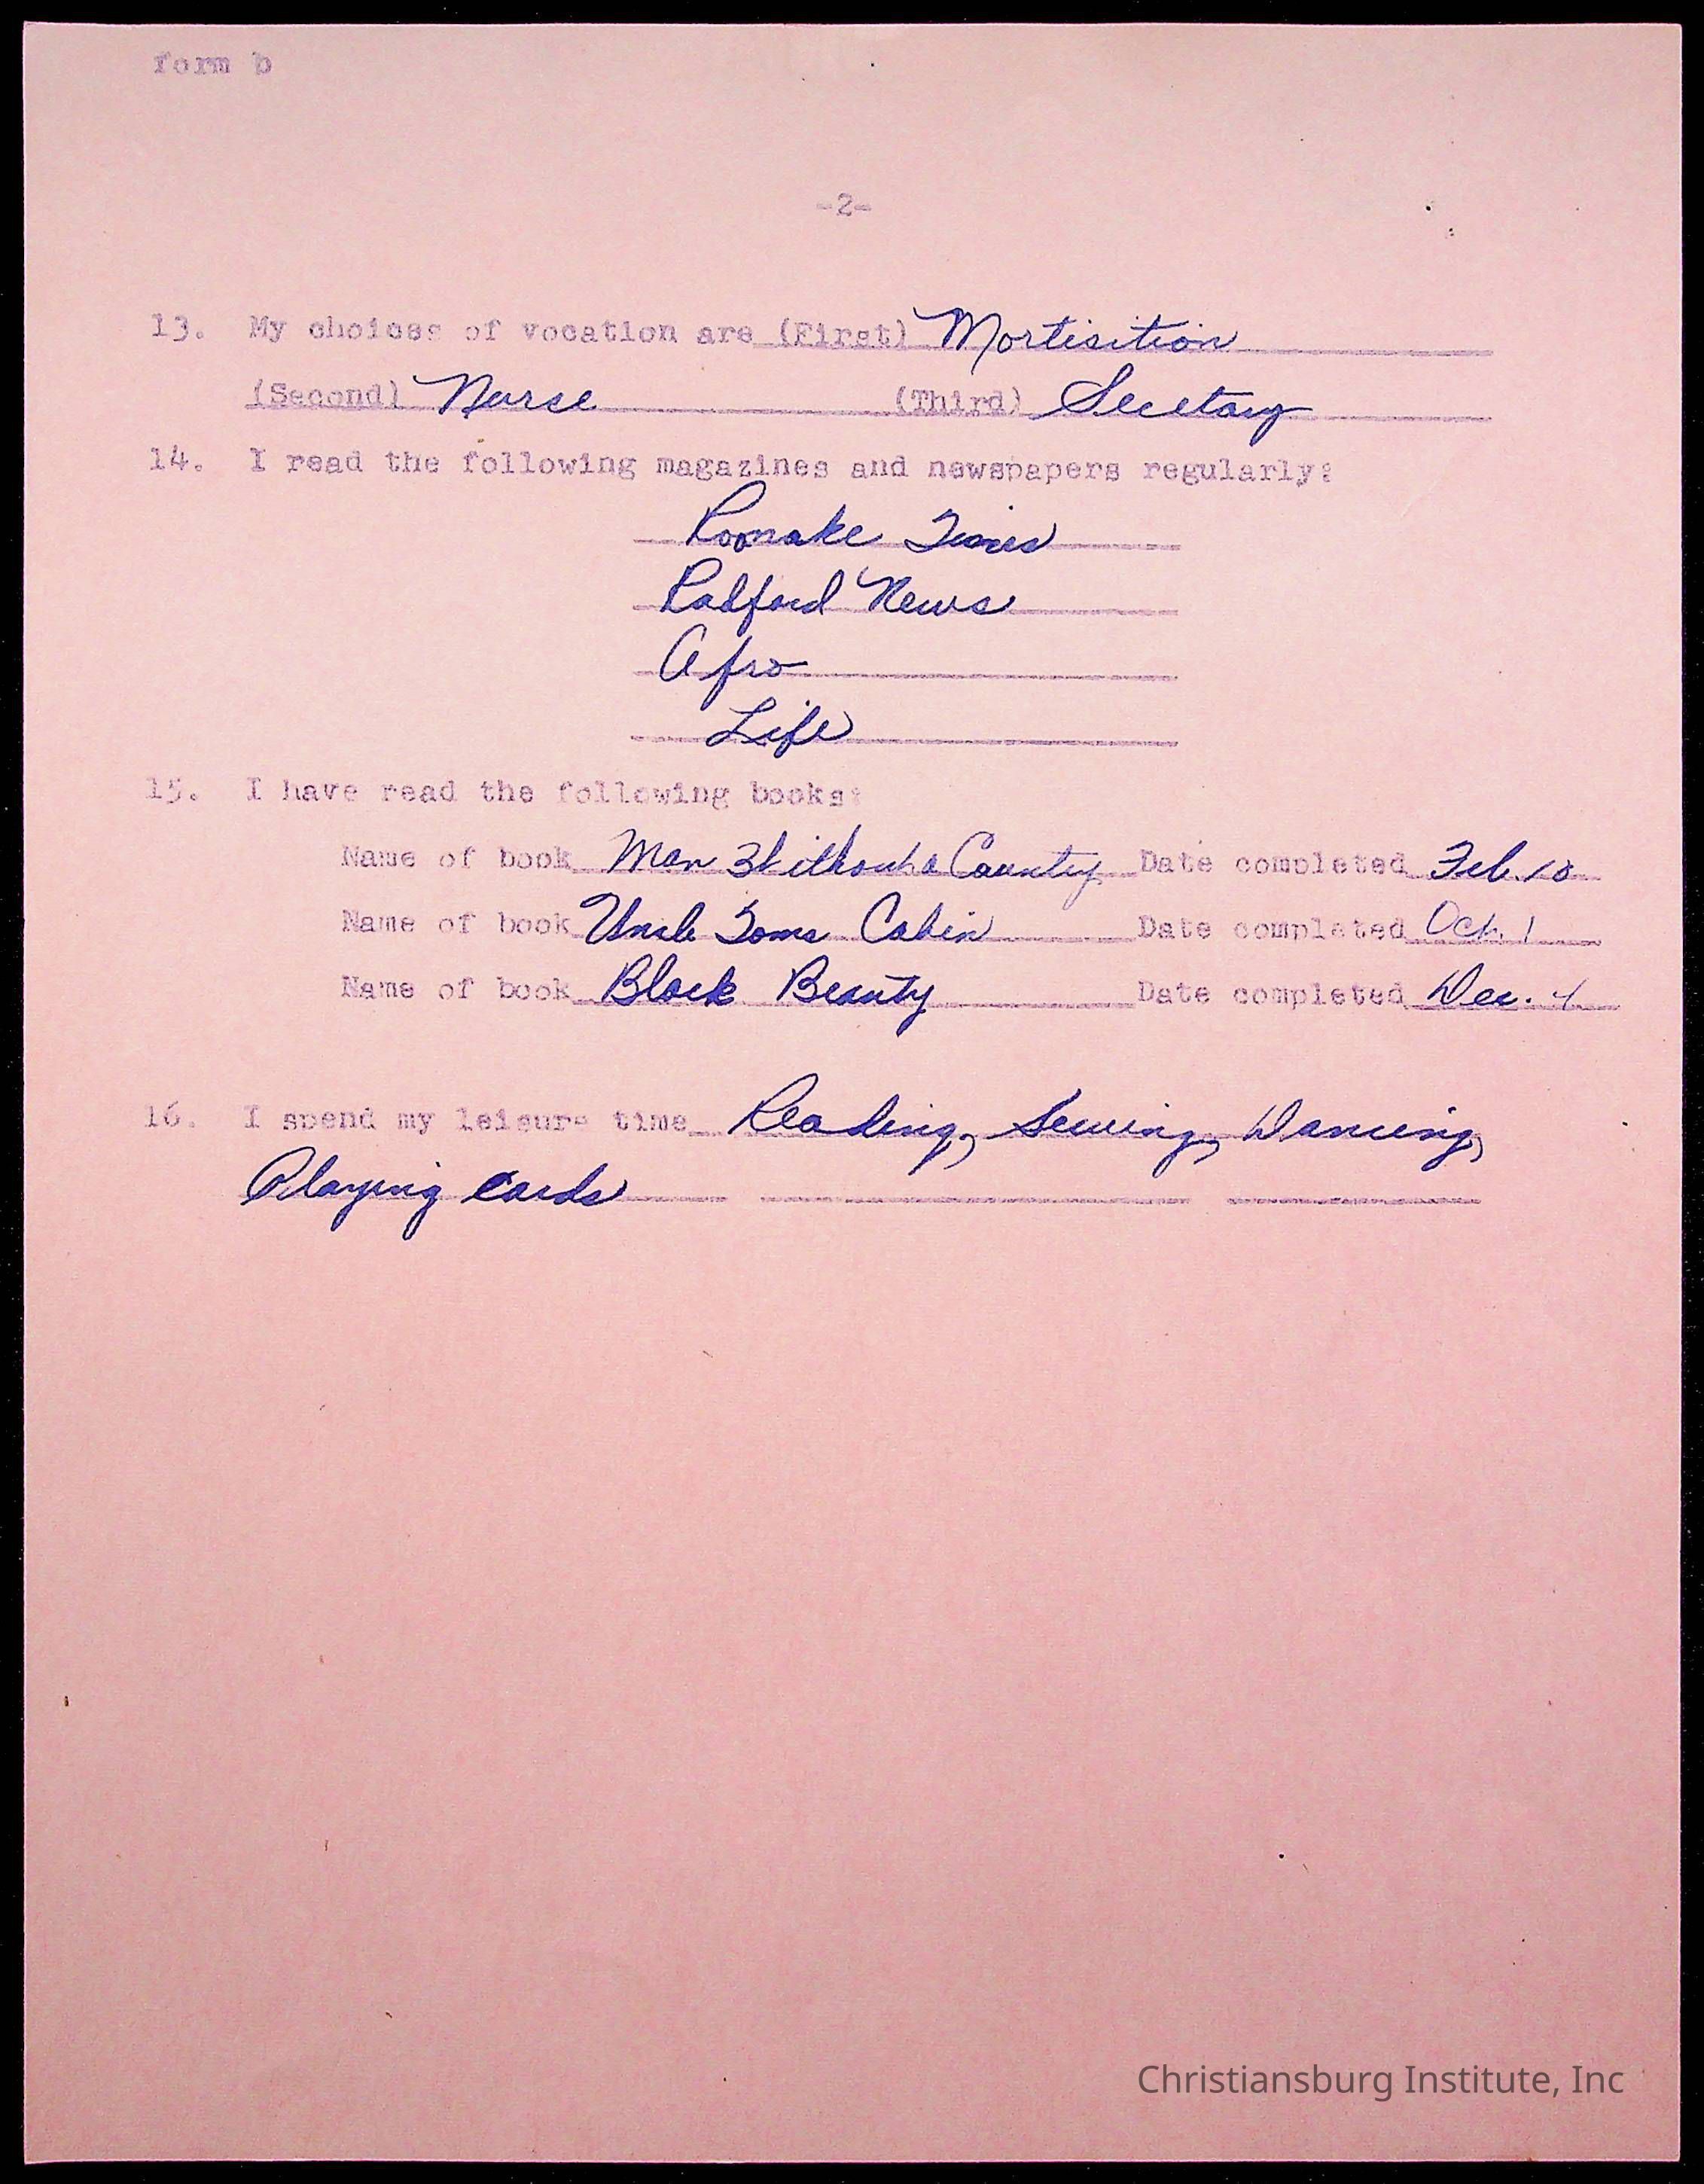 form b
-2-
13. My choices of vocation are (First) Mortisition
(Second) Nurse (Third) Secetary
14. I read the following magazines and newspapers regularly:
Roonake Times
Radford News
Afro
Life
15. I have read the following books:
Name of book Man Without a Country Date completed Feb. 10
Name of book Uncle Toms Cabin Date completed Oct. 1
Name of book Black Beauty Date completed Dec. 4
16. I spend my leisure time Reading, Sewing, Dancing,
Playing cards
Christiansburg Institute, Inc